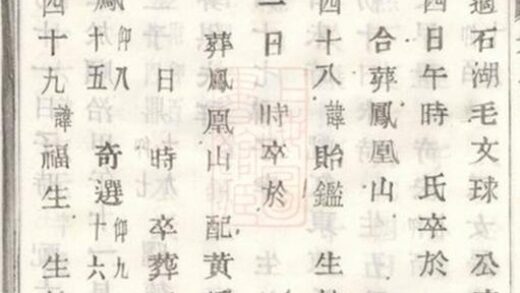 適石湖毛文球 公
四日午時 氏卒於
合葬鳳凰山
四十八諱貽鑑 生於
一日 時卒於
葬鳳凰山配黃
日 時卒葬
鳳 仰八十五 奇選 仰九十六
四十九諱福生 生